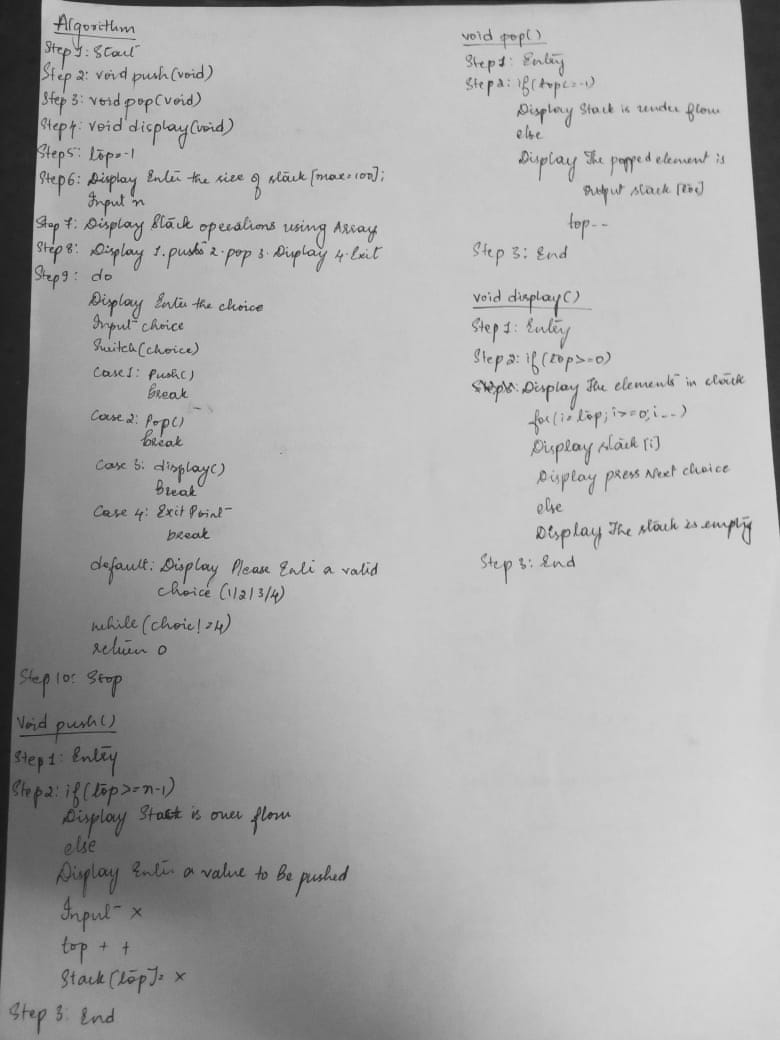 Algorithm
Step 1: Start
Step 2: void push(void)
Step 3: void pop(void)
Step 4: void display(void)
Step 5: top=-1
Step 6: Display Enter the size of stack [max=100];
Input n
Step 7: Display Stack operations using Array
Step 8: Display 1. push 2. pop 3. Display 4. Exit
Step 9: do
Display Enter the choice
Input choice
Switch(choice)
Case 1: Push()
break
Case 2: Pop()
break
Case 3: display()
break
Case 4: Exit Point
break
default: Display Please Enter a valid
choice (1/2/3/4)
while(choic!=4)
return 0
Step 10: Stop
Void push()
Step 1: Entry
Step 2: if(top>=n-1)
Display Stack is over flow
else
Display Enter a value to be pushed
Input x
top + +
Stack[top]= x
Step 3: End
void pop()
Step 1: Entry
Step 2: if(top<=-1)
Display Stack is render flow
else
Display The popped element is
output stack [top]
top--
Step 3: End
void display()
Step 1: Entry
Step 2: if(top>=0)
Display The elements in
for(i=top; i>=0; i--)
Display stack [i]
Display press Next choice
else
Display The stack is empty
Step 3: End